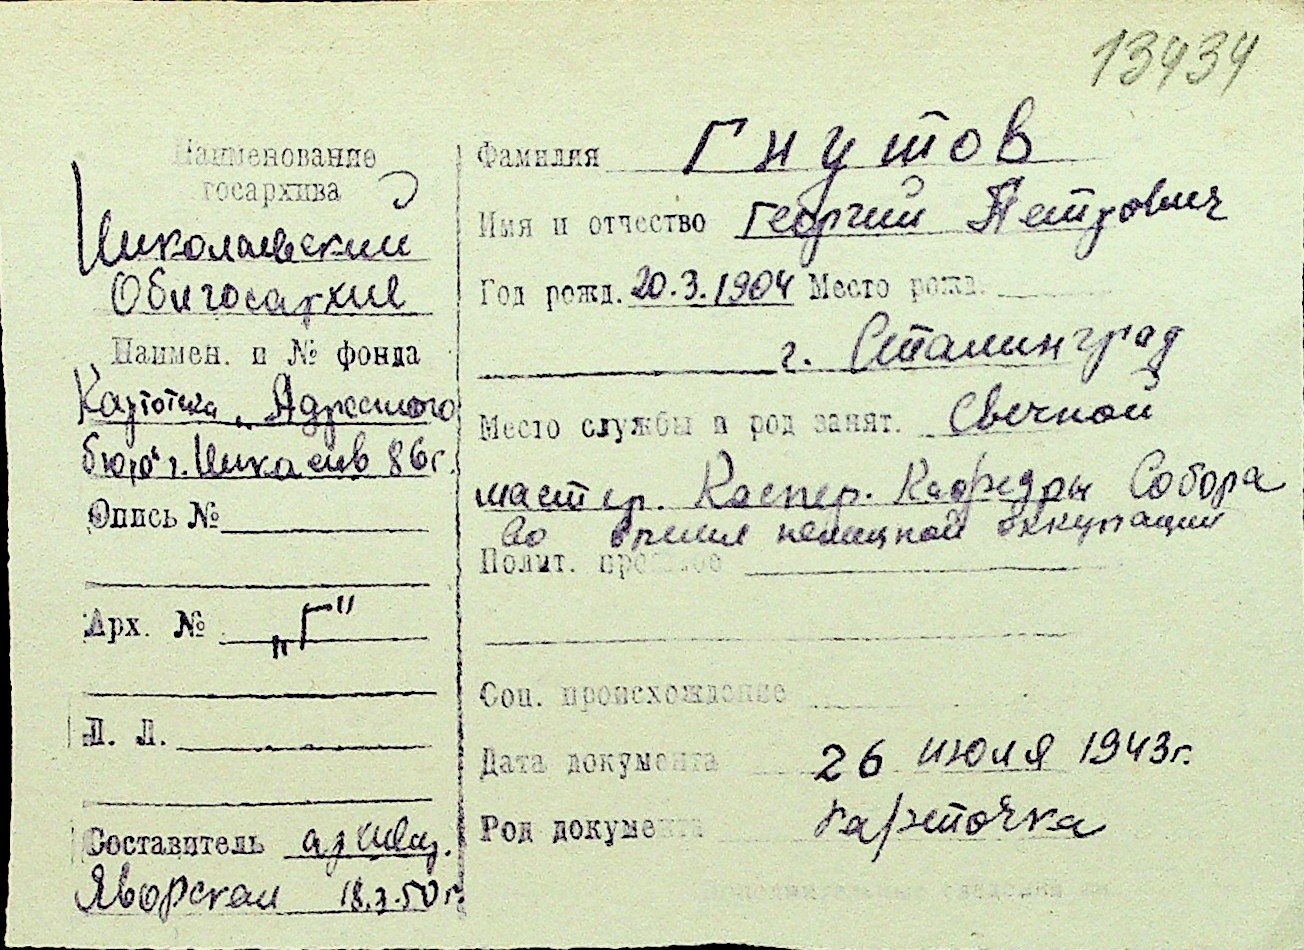 13434
Наименование
госархива
Николаевский
Облгосархив
Наимен. и № фонда
Картотека Адресного
бюро г. Николаев 86г.
Опись №
Арх. № „Г"
Л. Л.
Составитель архивар.
Яворская 18.3.50г.
Фамилия Гнутов
Имя и отчество Георгий Петрович
Год рожд. 20.3.1904 Место рожд.
г. Сталинград
Место службы и род занят. Свечной
мастер. Каспер. Кафедры Собора
во время немецкой оккупации
Полит. прошлое
Соц. происхождение
Дата документа 26 июля 1943г.
Род документа карточка
Дополнительные сведения